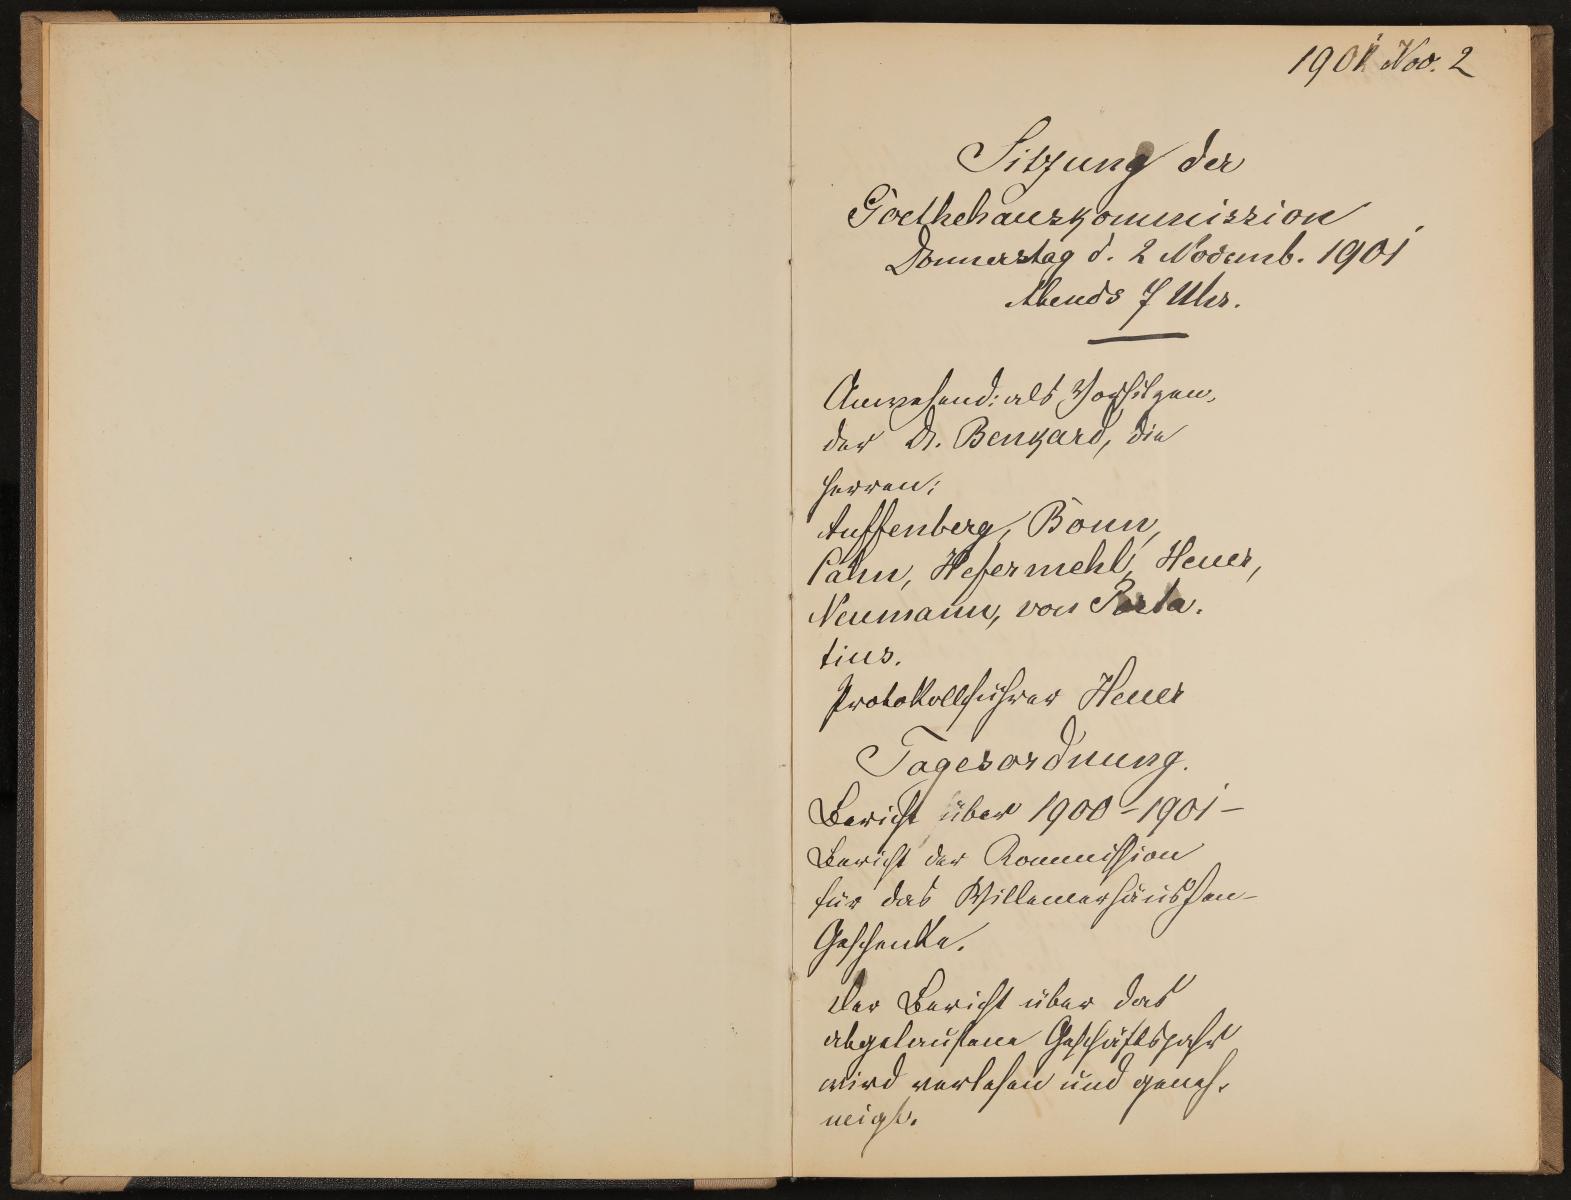 1901 Nov. 2
Sitzung der
Goethehauskommission
Donnerstag d. 2 Novemb. 1901
Abends 7 Uhr.
Anwesend: als Vorsitzen-
der Dr. Benkard, die
Herren:
Auffenberg, Bonn,
Cahn, Hefermehl, Heuer,
Neumann, von Porta-
tius.
Protokollführer Heuer
Tagesordnung.
Bericht über 1900–1901–
Bericht der Kommission
für das Willemerhäuschen–
Geschenke.
Der Bericht über das
abgelaufene Geschäftsjahr
wird verlesen und geneh-
migt.